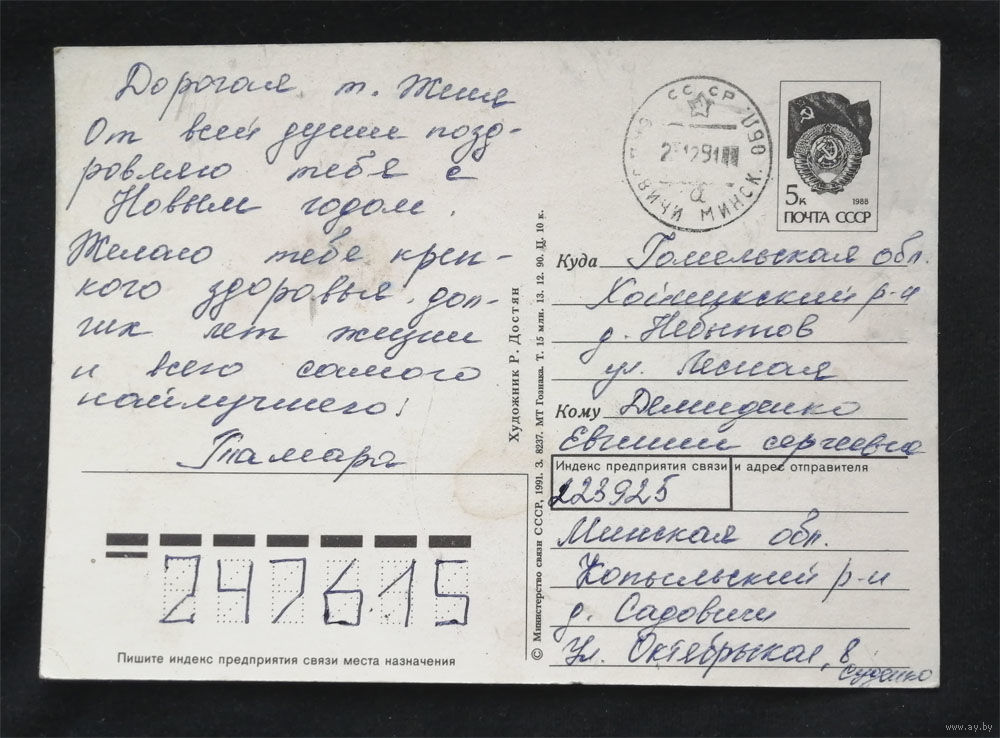 Дорогая т. Женя
От всей души позд-
ровляю тебя с
Новым годом.
Желаю тебе креп-
кого здоровья, дол-
гих лет жизни
и всего самого
найлучшего!
Тамара
СССР
25 12 91
МИНСК.
5к 1988
ПОЧТА СССР
Куда Гомельская обл.
Хойникский р-н
д. Небытов
ул. Лесная
Кому Демиденко
Евгении Сергеевне
Индекс предприятия связи и адрес отправителя
223925
Минская обл.
Копыльский р-н
д. Садовичи
Ул. Октябрьская, 8
247615
Пишите индекс предприятия связи места назначения
Художник Р. Достян
© Министерство связи СССР, 1991. З. 8237. МТ Гознака. Т. 15 млн. 13. 12. 90. Ц. 10 к.
www.ay.by